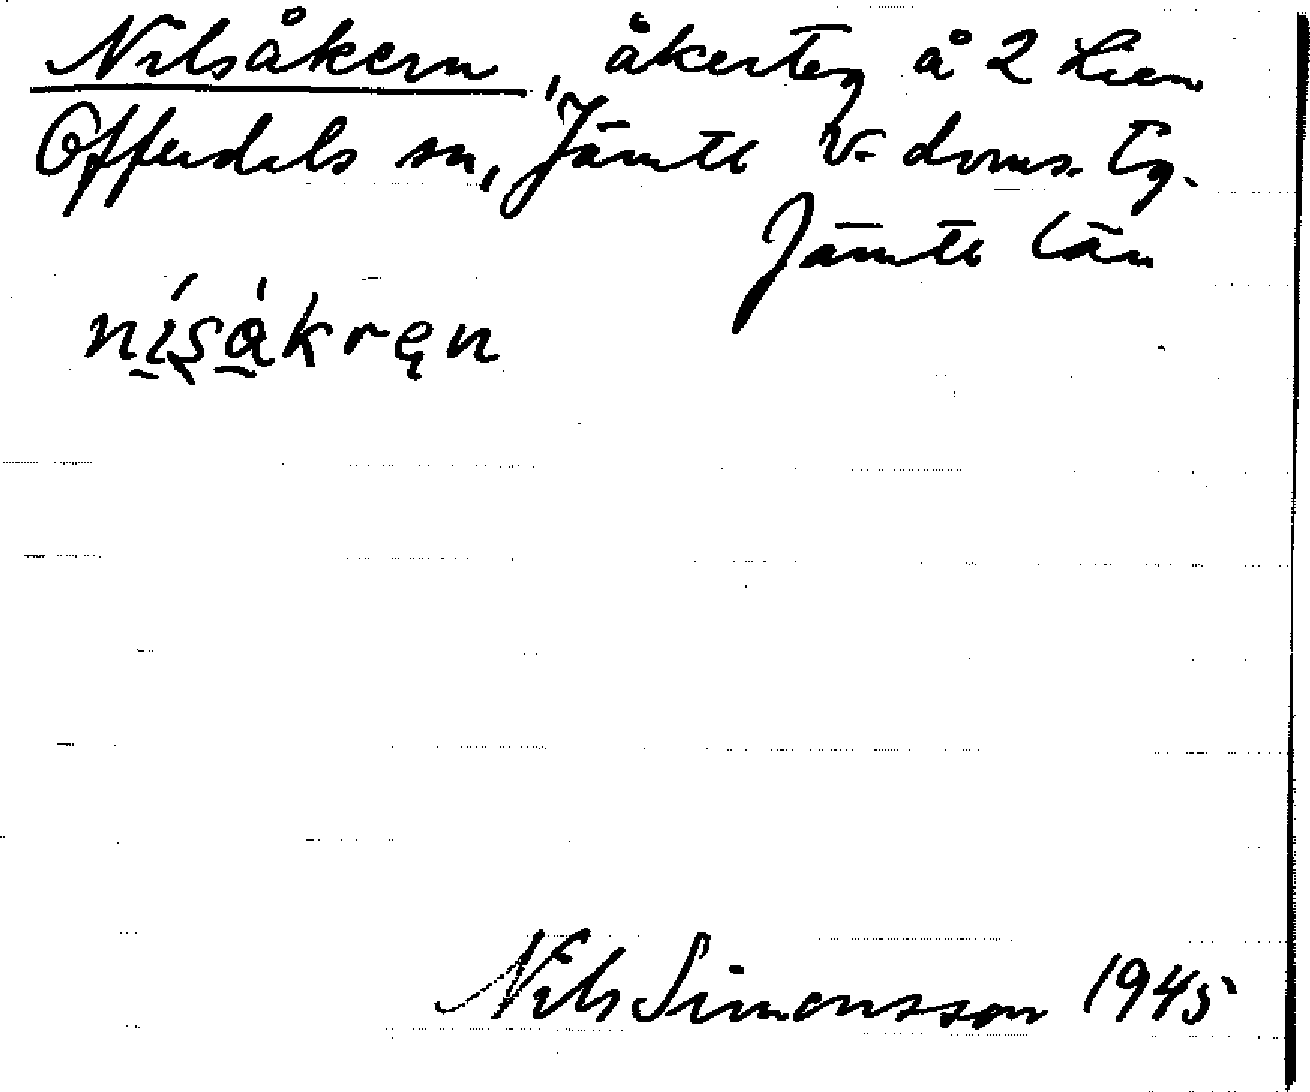 Nilsåkern, åkerteg å 2 Lien
Offerdals sn, Jämtl V. doms. tg.
Jämtl län
nísákren
Nils Simonsson 1945